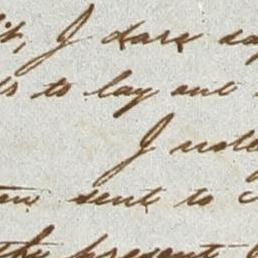 it, I dare say
to lay out
I note
sent to
the present